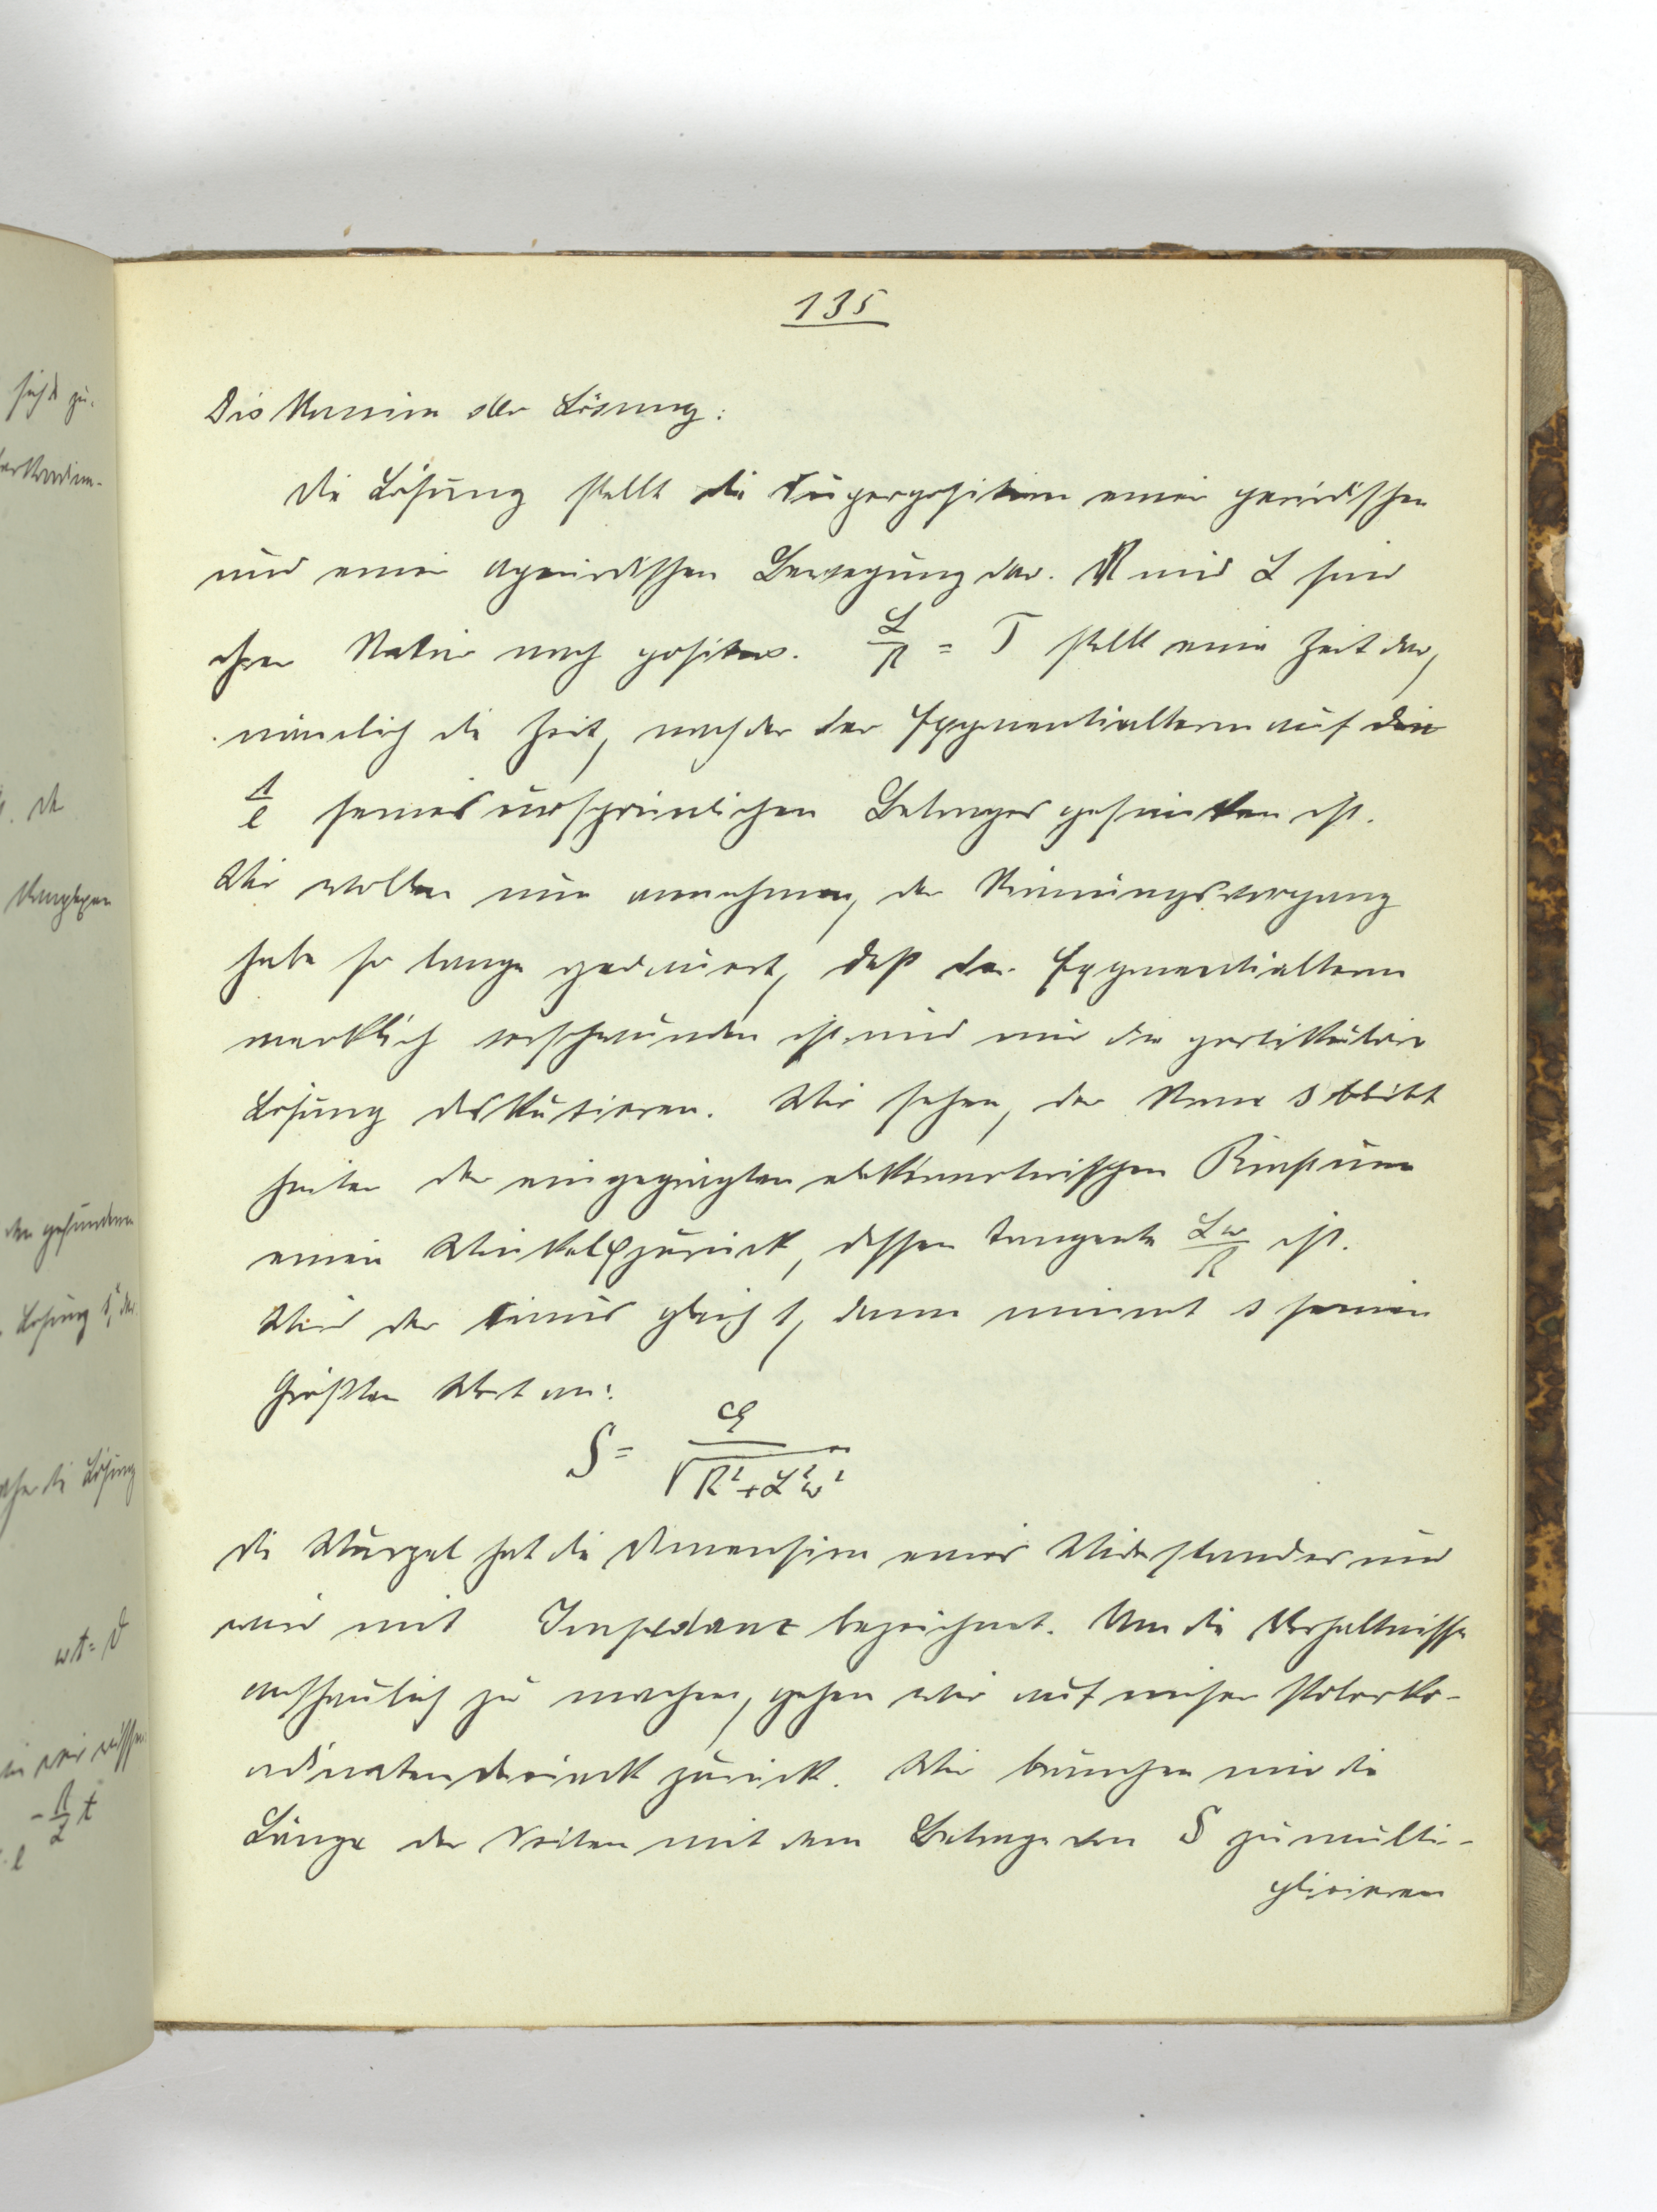 135
Diskussion der Lösung:
Die Lösung stellt die Superposition einer periodischen
und einer aperiodischen Bewegung dar. R und L sind
ihrer Natur nach positiv. L/R = T stellt eine Zeit dar,
nämlich die Zeit, nach der der Exponentialterm auf den
1/e seines ursprünlichen Betrages gesunken ist.
Wir wollen nun annehmen, der
habe so lange gedauert, daß der Exponentialterm
merklich verschwunden ist und nur die partikuläre
Lösung diskutieren. Wir sehen, der Strom s bleibt
hinter der eingeprägten elektromotorischen
einen Winkel φ zurück, dessen Tangente Lω/R ist.
Wird der sinus gleich 1, dann nimmt s seinen
größten Wert an:
S = E/√(R²+L²ω²)
Die Wurzel hat die Dimension eines Widerstandes und
wird mit Impedanz bezeichnet. Um die Verhältnisse
anschaulich zu machen, gehen wir auf unser Polarko-
ordinatendreieck zurück. Wir brauchen nur die
Länge der Seiten mit dem Betrage von S zu multi-
plizieren
sich zu
den gefundenen
Lösung
die Lösung
ωt = ϑ
wir wissen
-R/L t